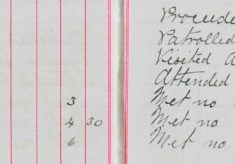 Proceede
Patrolled
Visited A
Attended
3 Met no
4 30 Met no
6 Met no